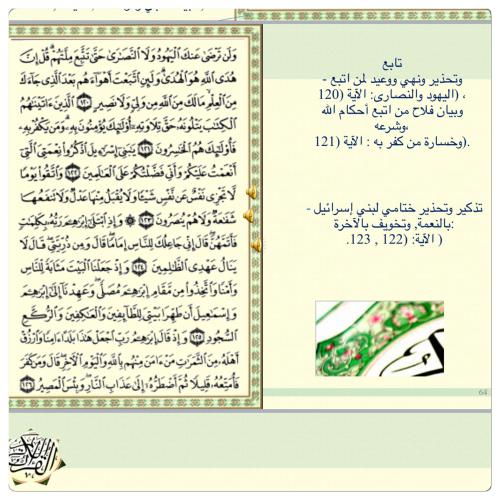 وَلَن تَرْضَىٰ عَنكَ ٱلْيَهُودُ وَلَا ٱلنَّصَـٰرَىٰ حَتَّىٰ تَتَّبِعَ مِلَّتَهُمْ قُلْ إِنَّ
هُدَى ٱللَّهِ هُوَ ٱلْهُدَىٰ وَلَئِنِ ٱتَّبَعْتَ أَهْوَآءَهُم بَعْدَ ٱلَّذِى جَآءَكَ
مِنَ ٱلْعِلْمِ مَا لَكَ مِنَ ٱللَّهِ مِن وَلِىٍّ وَلَا نَصِيرٍ ١٢٠ ٱلَّذِينَ ءَاتَيْنَـٰهُمُ
ٱلْكِتَـٰبَ يَتْلُونَهُۥ حَقَّ تِلَاوَتِهِۦٓ أُو۟لَـٰٓئِكَ يُؤْمِنُونَ بِهِۦ وَمَن يَكْفُرْ بِهِۦ
فَأُو۟لَـٰٓئِكَ هُمُ ٱلْخَـٰسِرُونَ ١٢١ يَـٰبَنِىٓ إِسْرَٰٓءِيلَ ٱذْكُرُوا۟ نِعْمَتِىَ ٱلَّتِىٓ
أَنْعَمْتُ عَلَيْكُمْ وَأَنِّى فَضَّلْتُكُمْ عَلَى ٱلْعَـٰلَمِينَ ١٢٢ وَٱتَّقُوا۟ يَوْمًا
لَّا تَجْزِى نَفْسٌ عَن نَّفْسٍ شَيْـًٔا وَلَا يُقْبَلُ مِنْهَا عَدْلٌ وَلَا تَنفَعُهَا
شَفَـٰعَةٌ وَلَا هُمْ يُنصَرُونَ ١٢٣ ۞ وَإِذِ ٱبْتَلَىٰٓ إِبْرَٰهِـۧمَ رَبُّهُۥ بِكَلِمَـٰتٍ
فَأَتَمَّهُنَّ قَالَ إِنِّى جَاعِلُكَ لِلنَّاسِ إِمَامًا قَالَ وَمِن ذُرِّيَّتِى قَالَ لَا
يَنَالُ عَهْدِى ٱلظَّـٰلِمِينَ ١٢٤ وَإِذْ جَعَلْنَا ٱلْبَيْتَ مَثَابَةً لِّلنَّاسِ
وَأَمْنًا وَٱتَّخِذُوا۟ مِن مَّقَامِ إِبْرَٰهِـۧمَ مُصَلًّى وَعَهِدْنَآ إِلَىٰٓ إِبْرَٰهِـۧمَ
وَإِسْمَـٰعِيلَ أَن طَهِّرَا بَيْتِىَ لِلطَّآئِفِينَ وَٱلْعَـٰكِفِينَ وَٱلرُّكَّعِ
ٱلسُّجُودِ ١٢٥ وَإِذْ قَالَ إِبْرَٰهِـۧمُ رَبِّ ٱجْعَلْ هَـٰذَا بَلَدًا ءَامِنًا وَٱرْزُقْ
أَهْلَهُۥ مِنَ ٱلثَّمَرَٰتِ مَنْ ءَامَنَ مِنْهُم بِٱللَّهِ وَٱلْيَوْمِ ٱلْـَٔاخِرِ قَالَ وَمَن كَفَرَ
فَأُمَتِّعُهُۥ قَلِيلًا ثُمَّ أَضْطَرُّهُۥٓ إِلَىٰ عَذَابِ ٱلنَّارِ وَبِئْسَ ٱلْمَصِيرُ ١٢٦
تابع
- وتحذير ونهي ووعيد لمن اتبع
اليهود والنصارى: الآية (120) ،
وبيان فلاح من اتبع أحكام الله
وشرعه،
وخسارة من كفر به : الآية (121).
- تذكير وتحذير ختامي لبني إسرائيل
بالنعمة, وتخويف بالآخرة:
( الآية: (122 , 123.
64